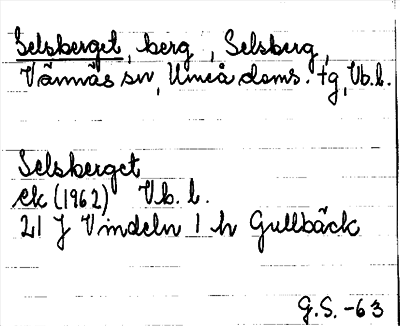 Selsberget, berg, Selsberg,
Vännäs sn, Umeå doms. tg, Vb.l.
Selsberget
ek (1962) Vb. l.
21 J Vindeln 1 h Gullbäck
G.S. -63